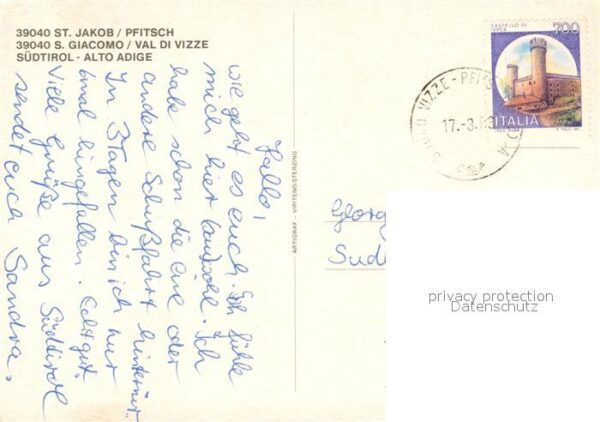 39040 ST. JAKOB / PFITSCH
39040 S. GIACOMO / VAL DI VIZZE
SÜDTIROL · ALTO ADIGE
Hallo,
wie geht es euch. Ich fühle
mich hier sauwohl. Ich
habe schon die eine oder
andere Schußfahrt hinter mir.
In 3 Tagen bin ich nur
6mal hingefallen. Echt gut.
Viele Grüße aus Südtirol
sendet euch Sandra.
ARTIGRAF - VIPITENO/STERZING
CASTELLO DI
IVREA
700
ITALIA
VIZZE - PFI
17.-3.
Georg
Sud
privacy protection
Datenschutz